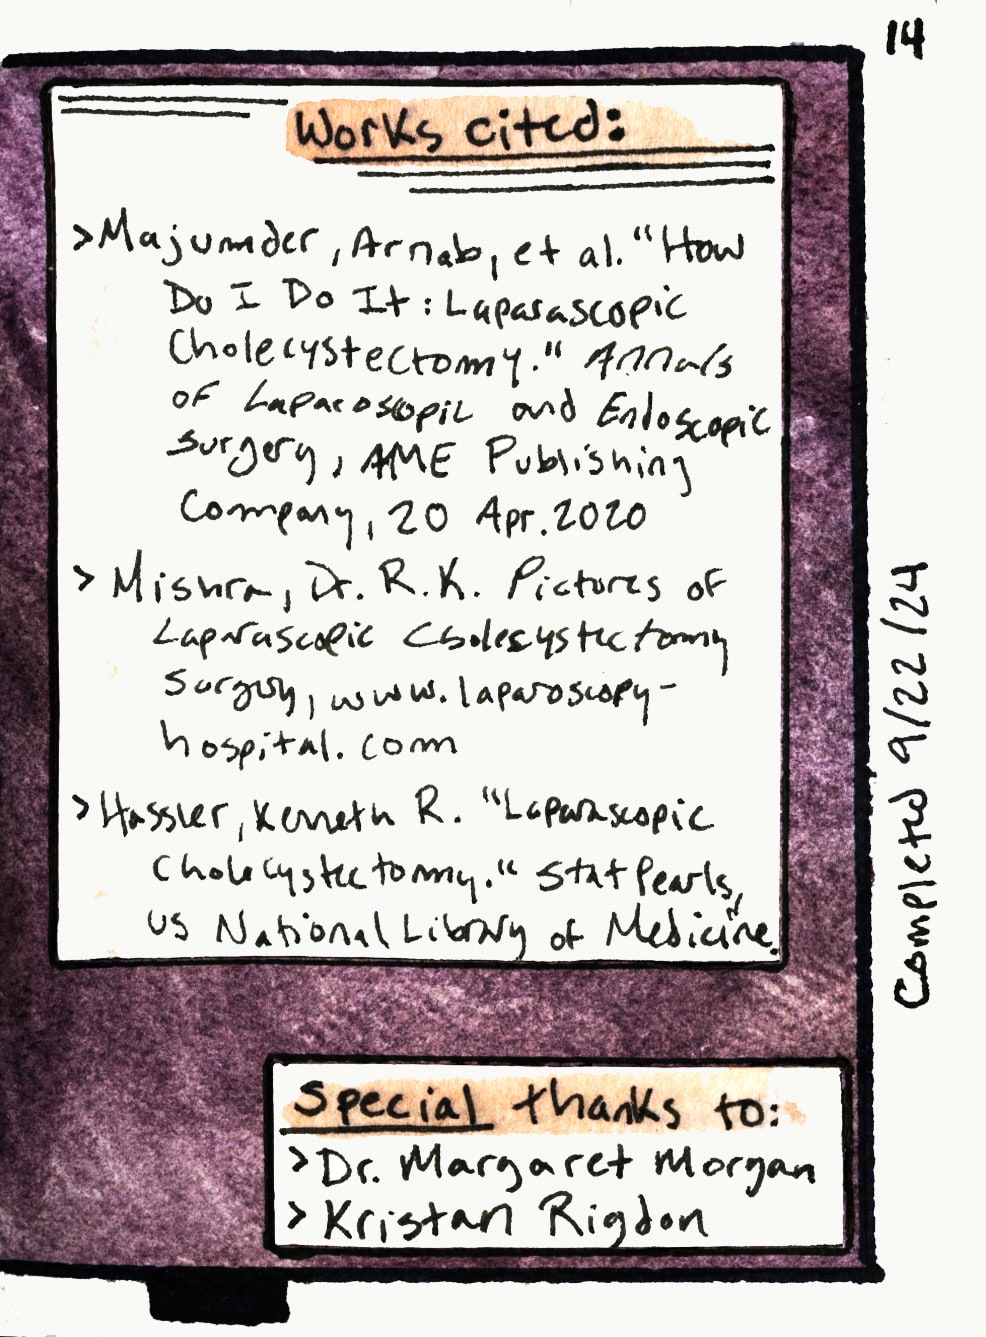 14
Works cited:
>Majumder, Arnab, et al. "How
Do I Do It: Laparascopic
Cholecystectomy." Annals
of Laparoscopic and Endoscopic
Surgery, AME Publishing
Company, 20 Apr. 2020
> Mishra, Dr. R.K. Pictures of
Laparascopic Cholecystectomy
Surgery, www.laparoscopy-
hospital.com
>Hassler, Kenneth R. "Laparascopic
Cholecystectomy." StatPearls,
US National Library of Medicine.
Completed 9/22/24
Special thanks to:
>Dr. Margaret Morgan
> Kristan Rigdon